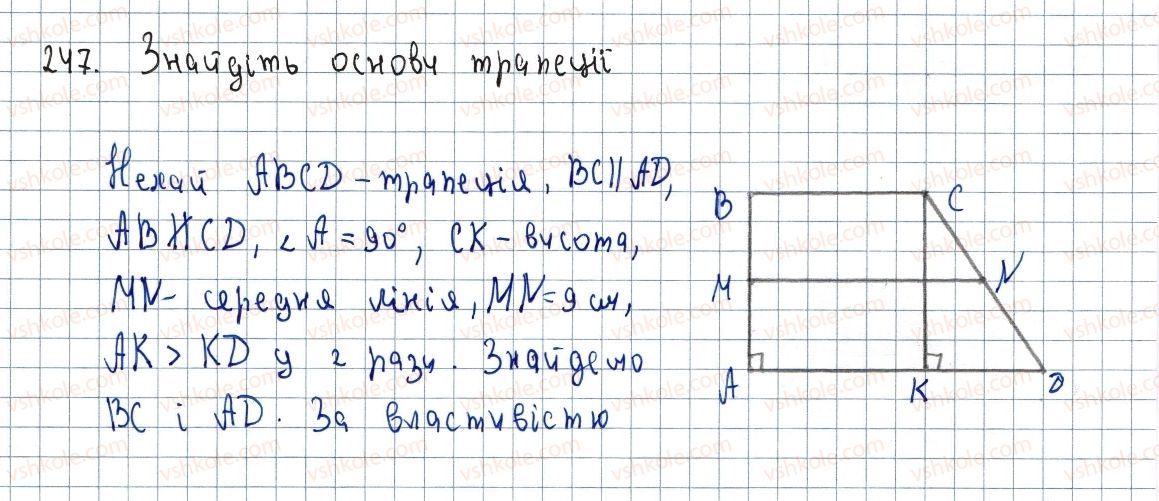 247. Знайдіть основи трапеції
Нехай ABCD - трапеція, BC || AD,
AB ∦ CD, ∠A = 90°, CK - висота,
MN - середня лінія, MN = 9 см,
AK > KD у 2 рази. Знайдемо
BC і AD. За властивістю
B C
M N
A K D
vshkole.com